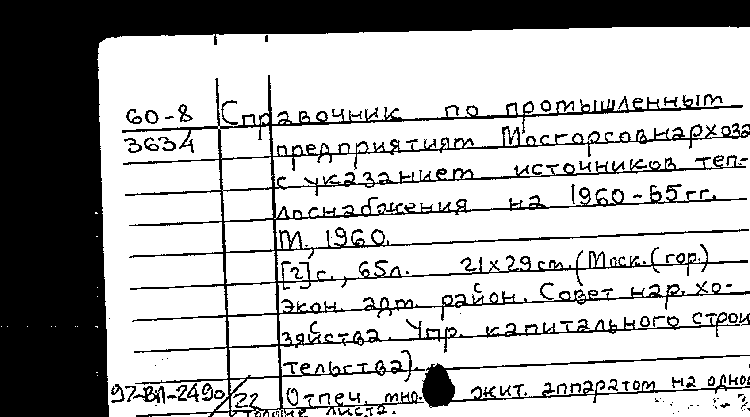 60-8 Справочник по промышленным
3634 предприятиям Мосгорсовнархоза
с указанием источников теп-
лоснабжения на 1960-65гг.
М., 1960.
[2]с., 65л. 21х29см. (Моск. (гор.)
экон. адм. район. Совет нар. хо-
зяйства. Упр. капитального строи
тельства).
97-ВЛ-2490/22 Отпеч. мно. жит. аппаратом на одной
листа.